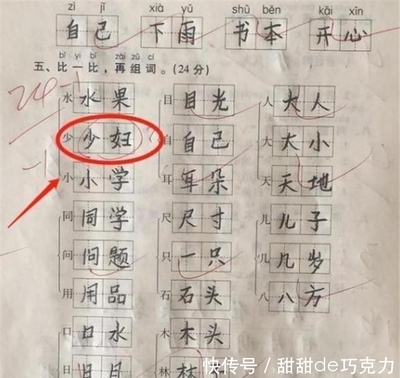 zì jǐ xià yǔ shū běn kāi xīn
自己 下雨 书本 开心
bǐ yì bǐ zài zǔ cí
五、比一比，再组词。(24分)
水 水果 目 目光 人 大人
少 少妇 自 自己 大 大小
小 小学 耳 耳朵 天 天地
同 同学 尺 尺寸 儿 儿子
问 问题 只 一只 几 几岁
用 用品 石 石头 八 八方
口 口水 木 木头
日 林
快传号 / 甜甜de巧克力